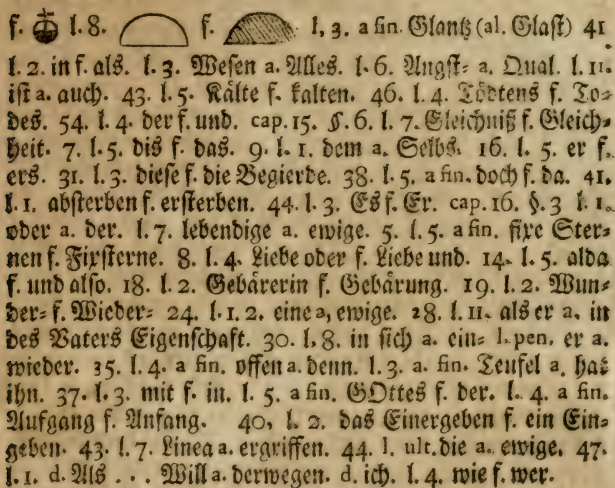 f. l. 8. f. l. 3. a fin. Glantz (al. Glast) 41
l. 2. in f. als. l. 3. Wesen a. Alles. l. 6. Angst- a. Qual. l. 11.
ist a. auch. 43. l. 5. Kälte f. kalten. 46. l. 4. Tödtens f. To-
des. 54. l. 4. der f. und. cap. 15. §. 6. l. 7. Gleichniß f. Gleich-
heit. 7. l. 5. bis f. das. 9. l. 1. dem a. Selbs. 16. l. 5. er f.
ers. 31. l. 3. diese f. die Begierde. 38. l. 5. a fin. doch f. da. 41.
l. 1. absterben f. ersterben. 44. l. 3. Es f. Er. cap. 16. §. 3 l. 1.
oder a. der. l. 7. lebendige a. ewige. 5. l. 5. a fin. fixe Ster-
nen f. Fixsterne. 8. l. 4. Liebe oder f. Liebe und. 14. l. 5. alda
f. und also. 18. l. 2. Gebärerin f. Gebärung. 19. l. 2. Wun-
der- f. Wieder- 24. l. 1. 2. eine a, ewige. 28. l. 11. als er a. in
des Vaters Eigenschaft. 30. l. 8. in sich a. ein- l. pen. er a.
wieder. 35. l. 4. a fin. offen a. denn. l. 3. a. fin. Teufel a. hat
ihn. 37. l. 3. mit f. in. l. 5. a fin. GOttes f. der. l. 4. a fin.
Aufgang f. Anfang. 40. l. 2. das Einergeben f. ein Ein-
geben. 43. l. 7. Linea a. ergriffen. 44. l. ult. die a. ewige. 47.
l. 1. d. Als . . . Will a. derwegen. d. ich. l. 4. wie f. wer.